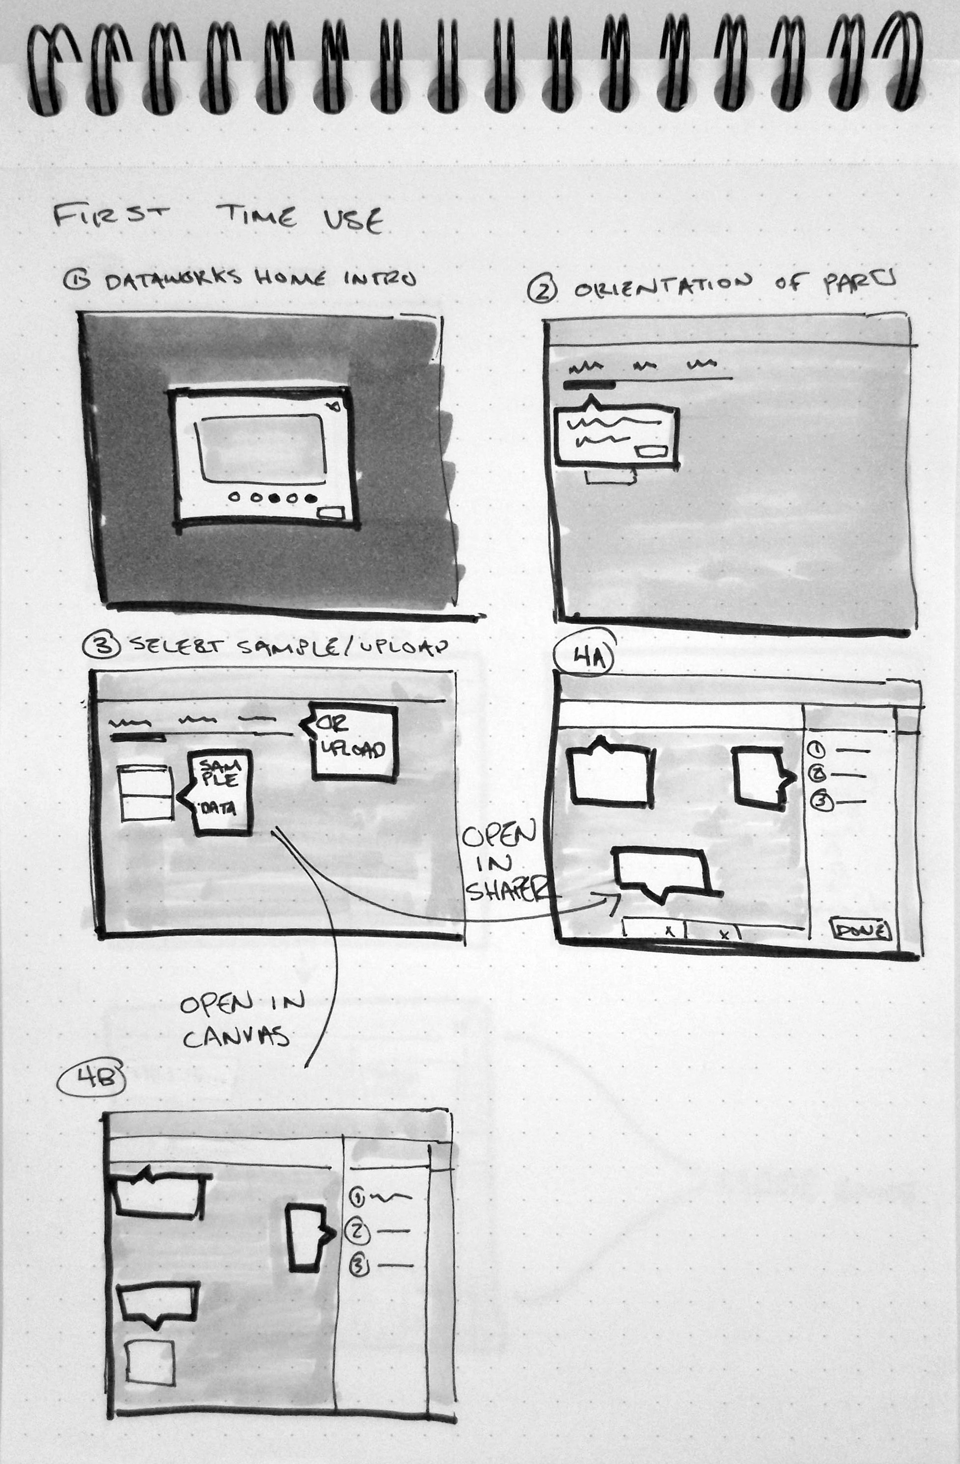 FIRST TIME USE
① DATAWORKS HOME INTRO
② ORIENTATION OF PARTS
③ SELECT SAMPLE/UPLOAD
OR
UPLOAD
SAM
PLE
DATA
OPEN
IN
SHAPER
4A
①
②
③
X X
DONE
OPEN IN
CANVAS
4B
①
②
③